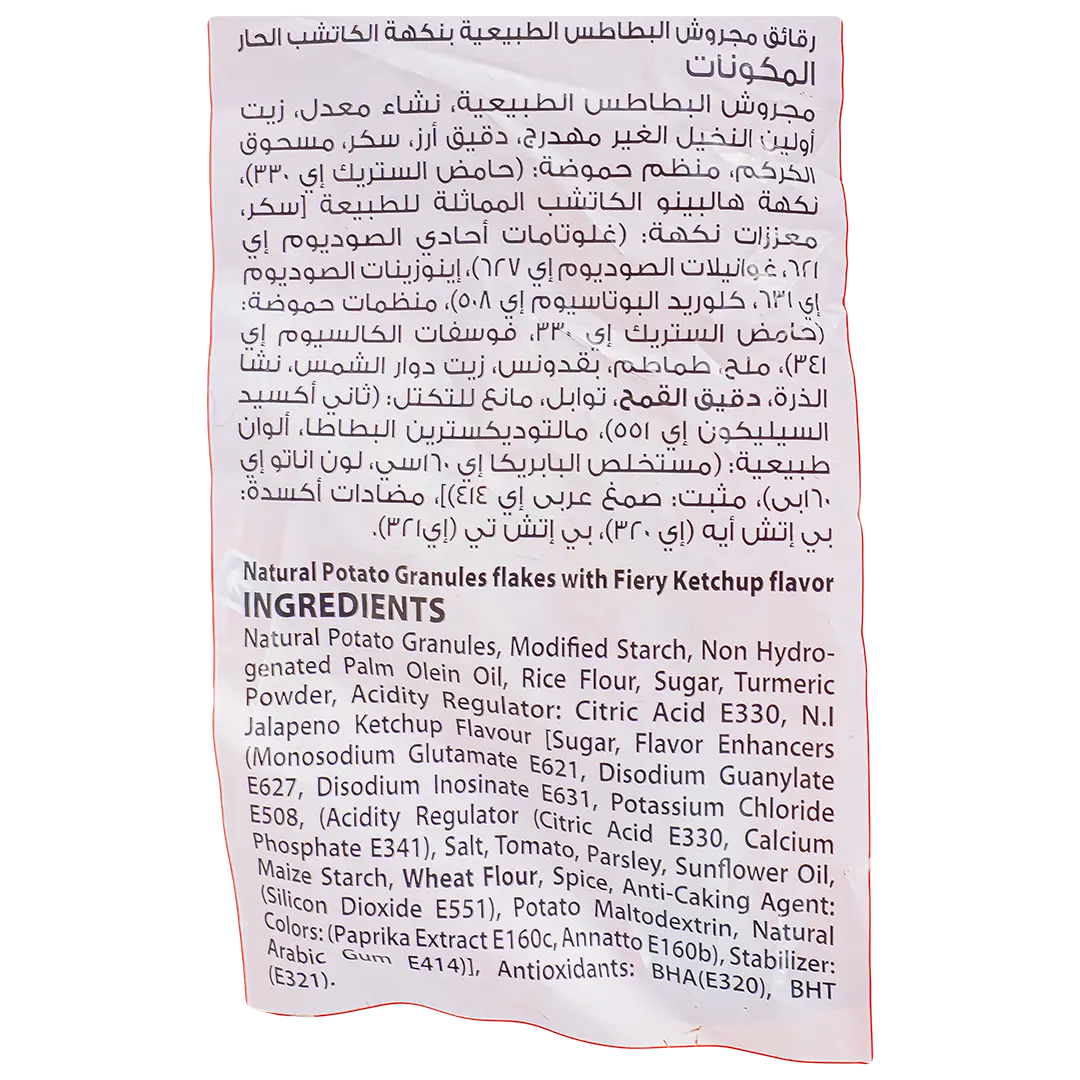 رقائق مجروش البطاطس الطبيعية بنكهة الكاتشب الحار
المكونات
مجروش البطاطس الطبيعية، نشاء معدل، زيت
أولين النخيل الغير مهدرج، دقيق أرز، سكر، مسحوق
الكركم، منظم حموضة: (حامض الستريك إي ٣٣٠)،
نكهة هالبينو الكاتشب المماثلة للطبيعة [سكر،
معززات نكهة: (غلوتامات أحادي الصوديوم إي
٦٢١، غوانيلات الصوديوم إي ٦٢٧)، إينوزينات الصوديوم
إي ٦٣١، كلوريد البوتاسيوم إي ٥٠٨)، منظمات حموضة:
(حامض الستريك إي ٣٣٠، فوسفات الكالسيوم إي
٣٤١)، ملح، طماطم، بقدونس، زيت دوار الشمس، نشا
الذرة، دقيق القمح، توابل، مانع للتكتل: (ثاني أكسيد
السيليكون إي ٥٥١)، مالتوديكسترين البطاطا، ألوان
طبيعية: (مستخلص البابريكا إي ١٦٠سي، لون اناتو إي
١٦٠بى)، مثبت: صمغ عربى إي ٤١٤)]، مضادات أكسدة:
بي إتش أيه (إي ٣٢٠)، بي إتش تي (إي٣٢١).
Natural Potato Granules flakes with Fiery Ketchup flavor
INGREDIENTS
Natural Potato Granules, Modified Starch, Non Hydro-
genated Palm Olein Oil, Rice Flour, Sugar, Turmeric
Powder, Acidity Regulator: Citric Acid E330, N.I
Jalapeno Ketchup Flavour [Sugar, Flavor Enhancers
(Monosodium Glutamate E621, Disodium Guanylate
E627, Disodium Inosinate E631, Potassium Chloride
E508, (Acidity Regulator (Citric Acid E330, Calcium
Phosphate E341), Salt, Tomato, Parsley, Sunflower Oil,
Maize Starch, Wheat Flour, Spice, Anti-Caking Agent:
(Silicon Dioxide E551), Potato Maltodextrin, Natural
Colors: (Paprika Extract E160c, Annatto E160b), Stabilizer:
Arabic Gum E414)], Antioxidants: BHA(E320), BHT
(E321).